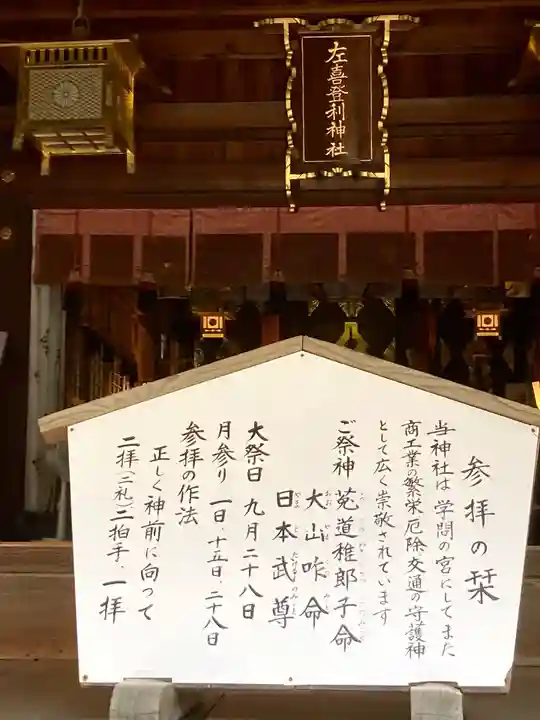 左喜登利神社
参拝の栞
当神社は学問の宮にしてまた
商工業の繁栄厄除、交通の守護神
として広く崇敬されています
ご祭神 菟道稚郎子命
大山咋命
日本武尊
大祭日 九月二十八日
月参り 一日・十五日・二十八日
参拝の作法
正しく神前に向って
二拝(二礼)二拍手、一拝